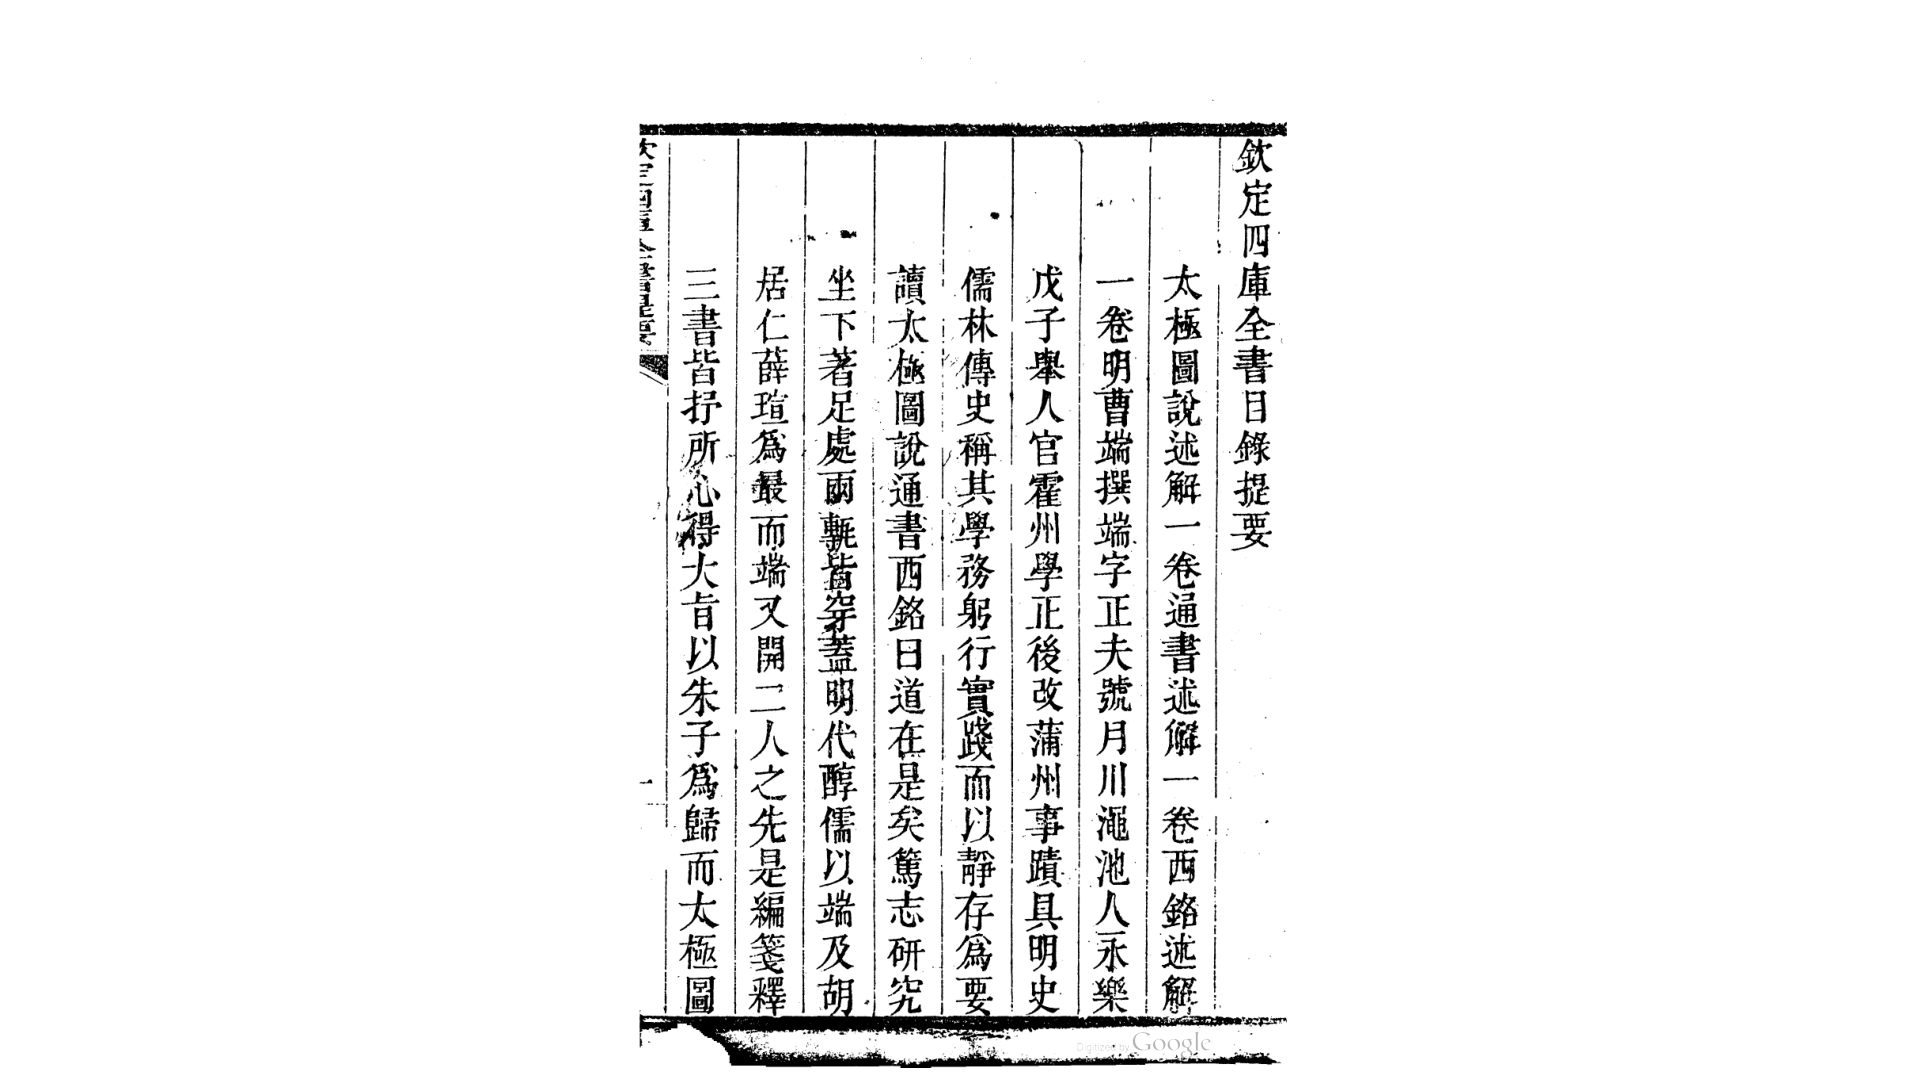 欽定四庫全書目錄提要
太極圖說述解一卷通書述解一卷西銘述解
一卷明曹端撰端字正夫號月川澠池人永樂
戊子舉人官霍州學正後改蒲州事蹟具明史
儒林傳史稱其學務躬行實踐而以靜存爲要
讀太極圖說通書西銘曰道在是矣篤志研究
坐下著足處兩甎皆穿蓋明代醇儒以端及胡
居仁薛瑄爲最而端又開二人之先是編箋釋
三書皆抒所心得大旨以朱子爲歸而太極圖
一
Digitized by Google